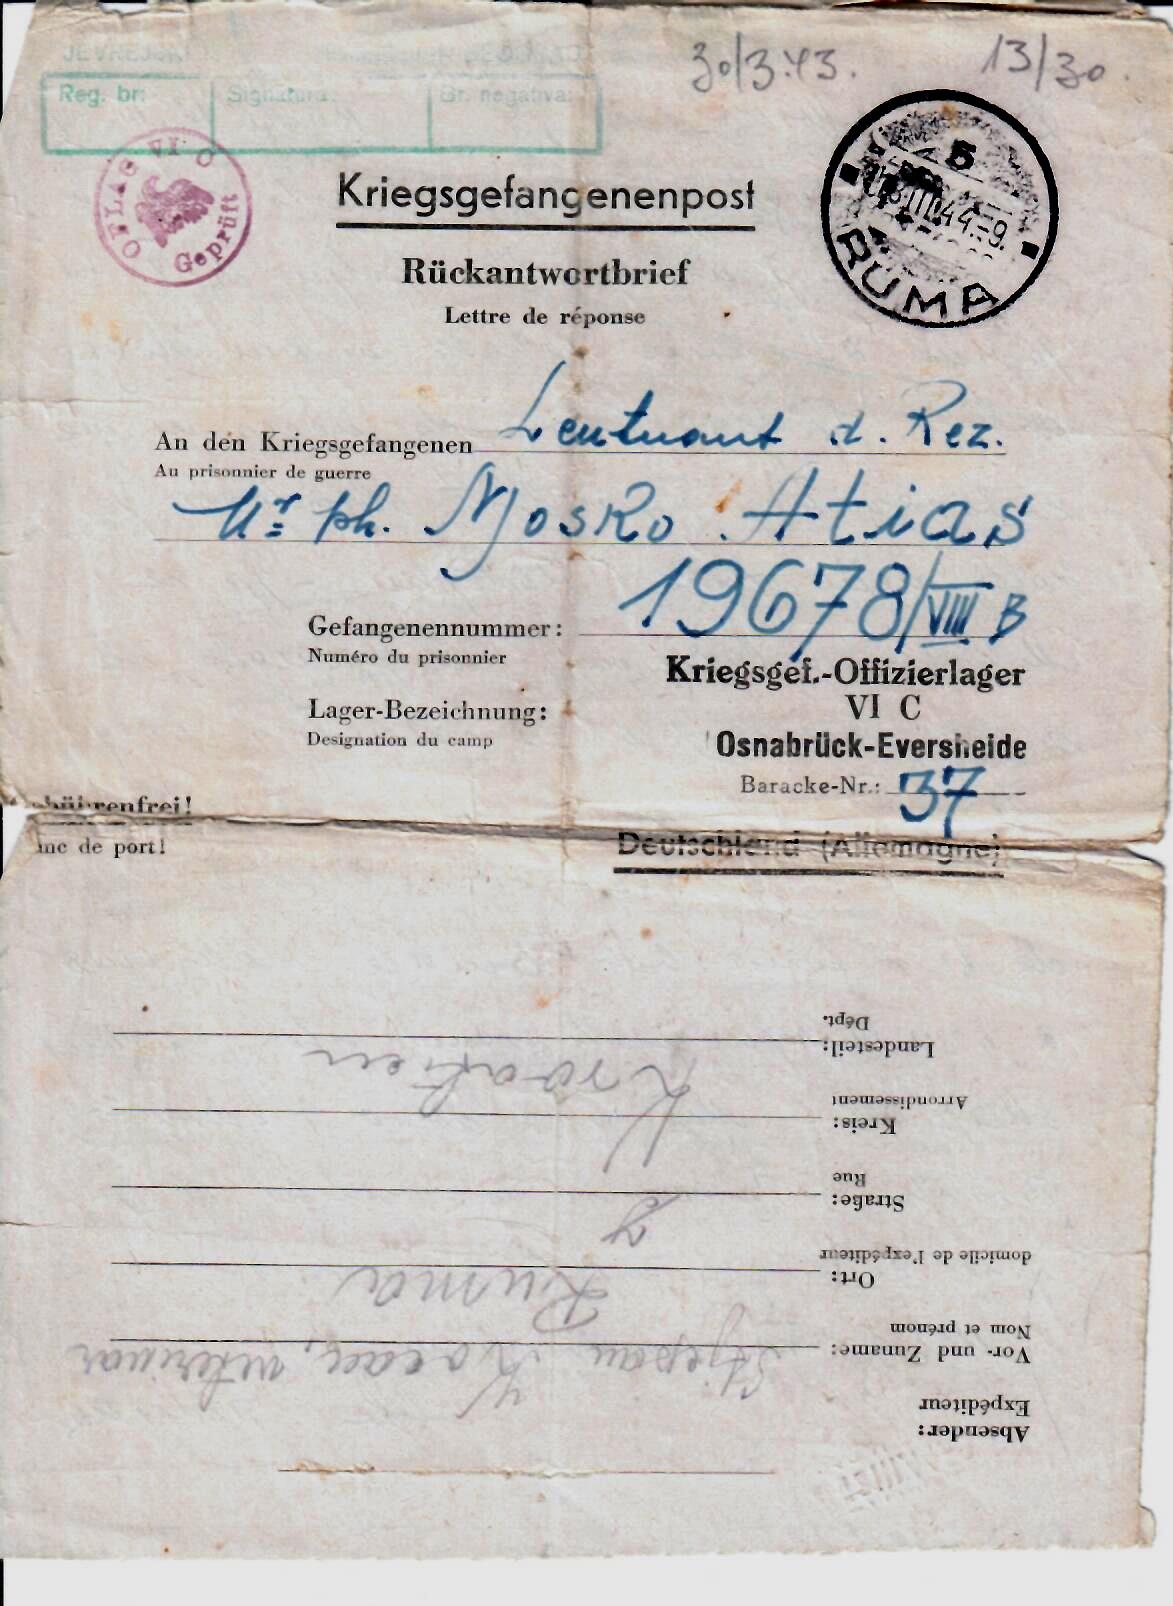 Reg. br:
Signatura:
Br. negativa:
30/3.43.
13/30.
OFLAG VI C
Geprüft
Kriegsgefangenenpost
Rückantwortbrief
Lettre de réponse
5
III.44.-9.
RUMA
An den Kriegsgefangenen Leutnant d. Rez.
Au prisonnier de guerre
Mr ph. Mosko Atias
Gefangenennummer: 19678/VIII B
Numéro du prisonnier
Kriegsgef.-Offizierlager
Lager-Bezeichnung: VI C
Designation du camp
Osnabrück-Eversheide
Baracke-Nr.: 37
de port!
Deutschland (Allemagne)
Absender:
Expéditeur
Vor- und Zuname: Stjepan
Nom et prénom
Ort: Ruma
domicile de l'expéditeur
Straße:
Rue
Kreis:
Arrondissement
Landesteil: Kroatien
Dépt.